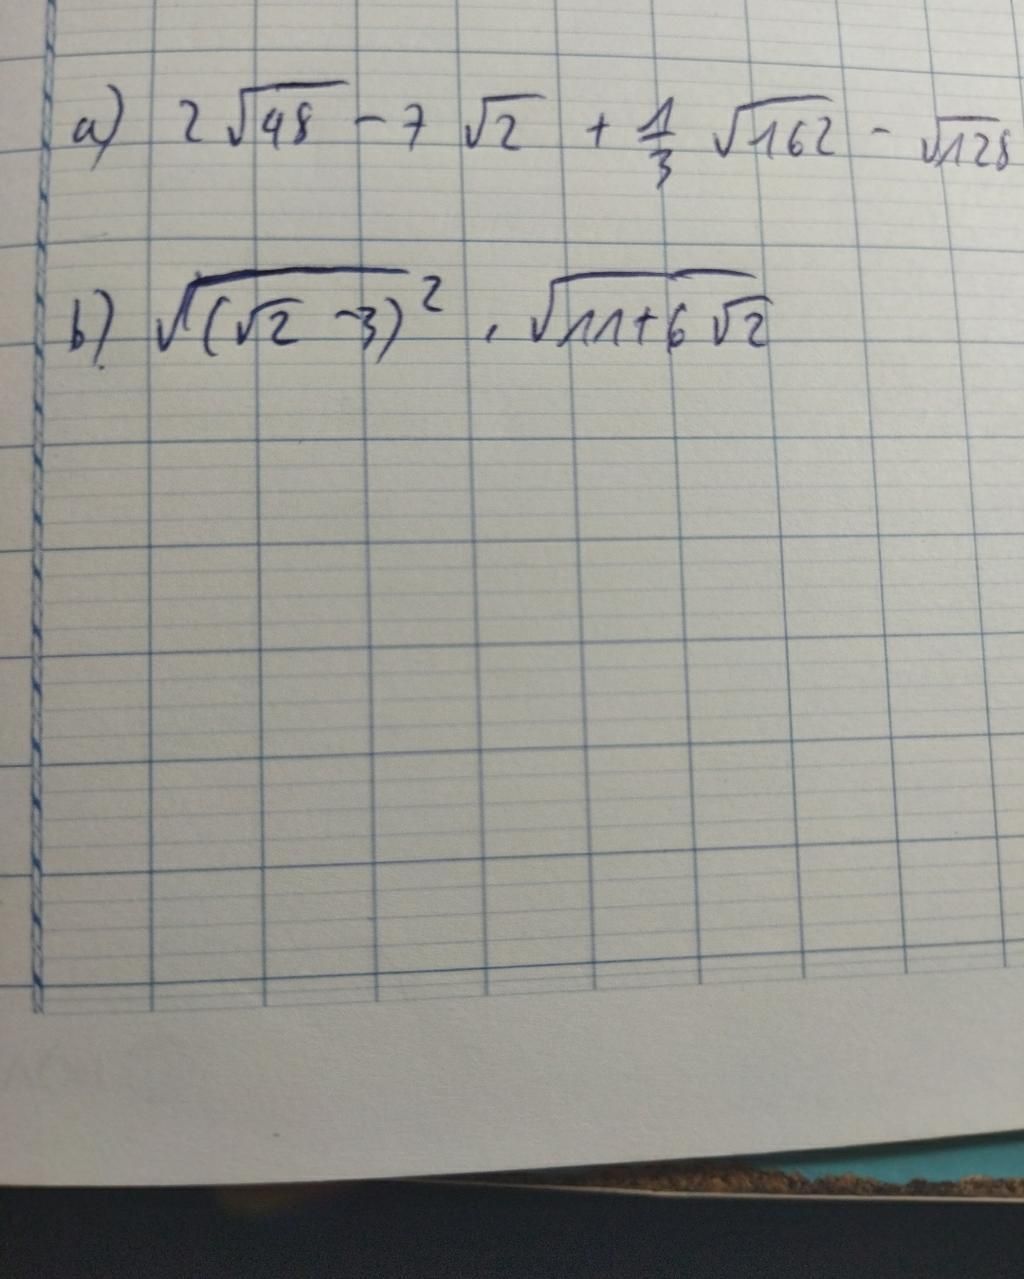 a) 2√48 - 7√2 + 1/3 √162 - √128
b) √(√2 - 3)² . √11+6√2